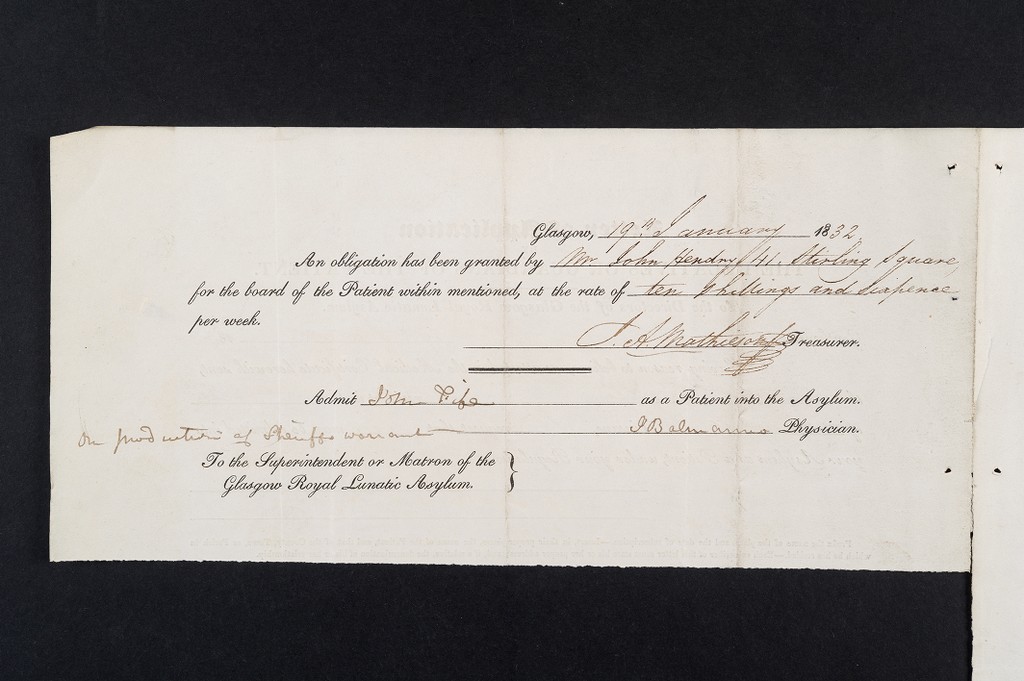 Glasgow, 19th January 1832
An obligation has been granted by Mr. John Hendry 41. Stirling Square,
for the board of the Patient within mentioned, at the rate of ten shillings and sixpence
per week.
J. A. Mathieson Treasurer.
Admit John Fife as a Patient into the Asylum.
On production of Sheriffs warrant J Balmanno Physician.
To the Superintendent or Matron of the
Glasgow Royal Lunatic Asylum.